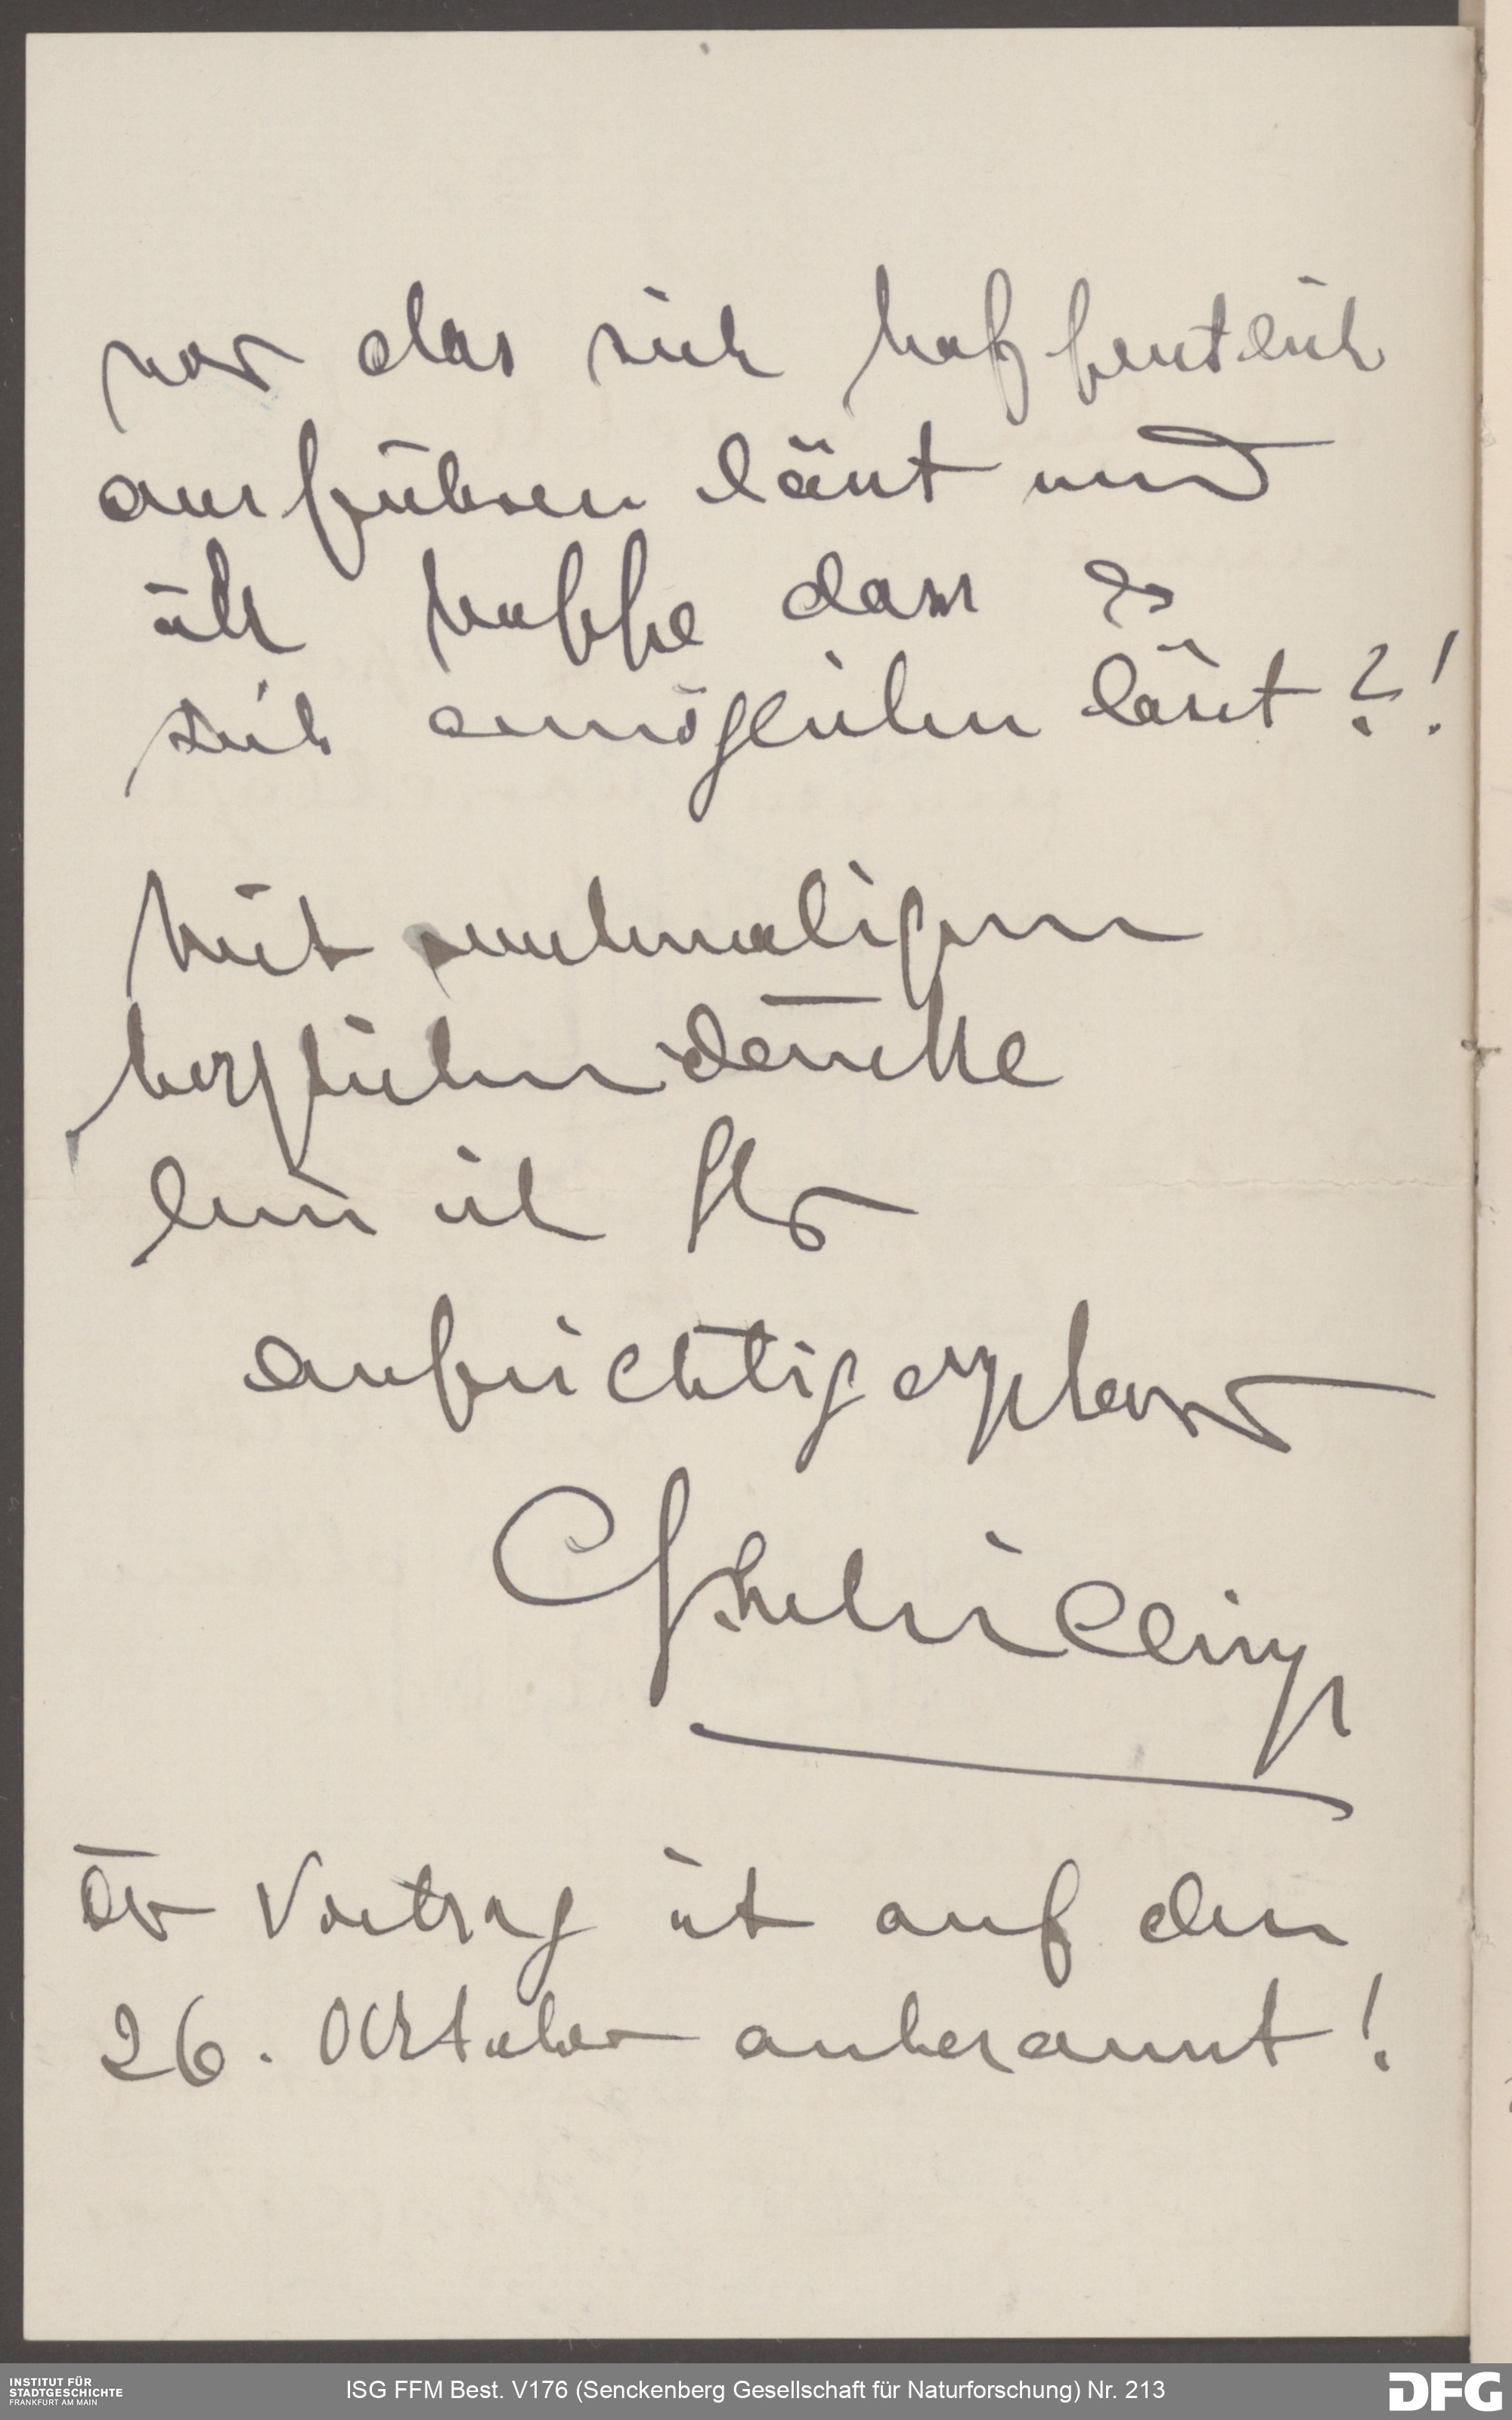 vor das sich hoffentlich
ausführen lässt und
ich hoffe dass es
sich ermöglichen lässt?!
Mit nochmaligem
herzlichem Danke
bin ich Ihr
aufrichtig ergebener
CGSchillings
Der Vortrag ist auf den
26. Oktober anberaumt!
INSTITUT FÜR
STADTGESCHICHTE
FRANKFURT AM MAIN
ISG FFM Best. V176 (Senckenberg Gesellschaft für Naturforschung) Nr. 213
DFG